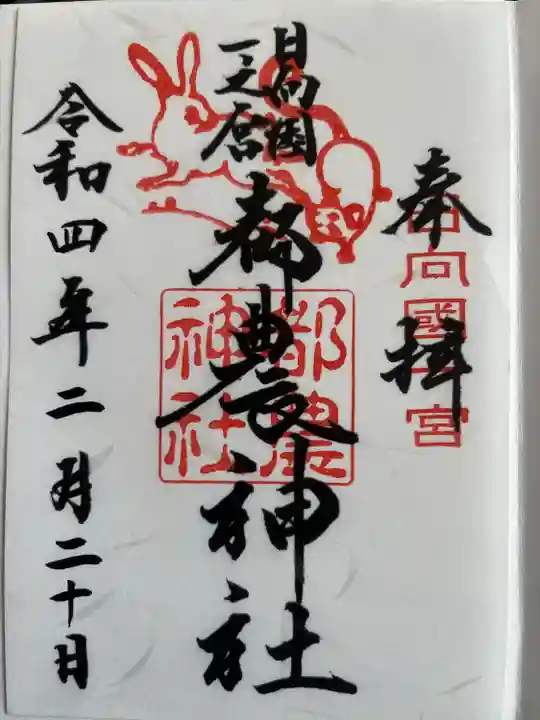 奉拝
日向國一宮
日向国
一之宮
都農神社
都農
神社
令和四年二月二十日